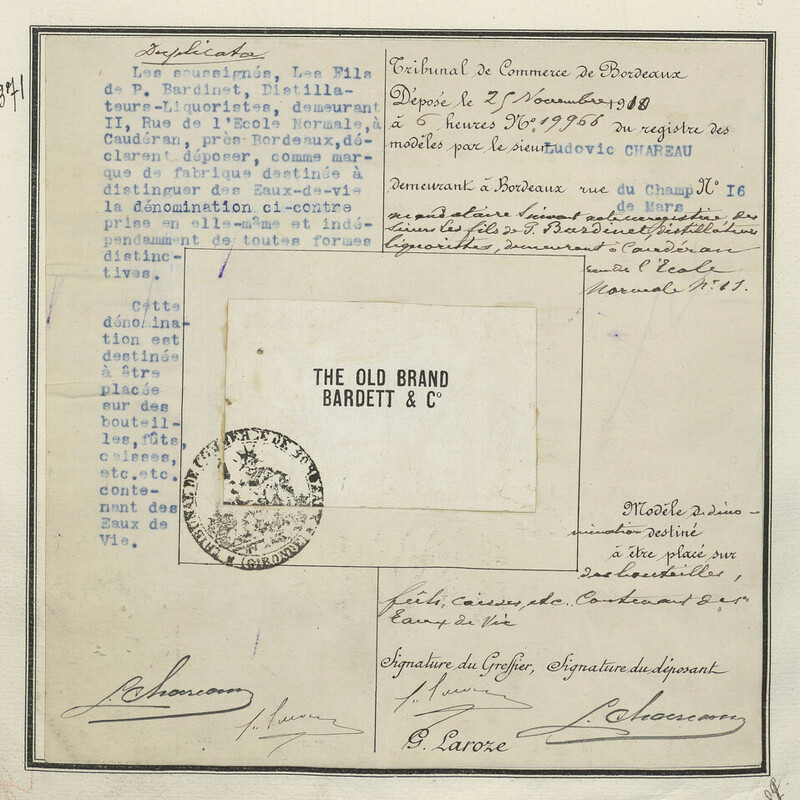 Duplicata
Les soussignés, Les Fils
de P. Bardinet, Distilla-
teurs-Liquoristes, demeurant
II, Rue de l'Ecole Normale, à
Caudéran, près Bordeaux, dé-
clarent déposer, comme mar-
que de fabrique destinée à
distinguer des Eaux-de-vie
la dénomination ci-contre
prise en elle-même et indé-
pendamment de toutes formes
distinc-
tives.
Cette
dénomina-
tion est
destinée
à être
placée
sur des
bouteil-
les, fûts,
caisses,
etc.etc.
conte-
nant des
Eaux de
Vie.
Tribunal de Commerce de Bordeaux
Déposé le 25 Novembre 1910
à 6 heures Nº 19966 du registre des
modèles par le sieur Ludovic CHAREAU
demeurant à Bordeaux rue du Champ Nº I6
de Mars
mandataire suivant acte enregistré, des
sieurs les fils de P. Bardinet, distillateurs
liquoristes, demeurant à Caudéran
rue de l'Ecole
Normale Nº 11.
THE OLD BRAND
BARDETT & Cº
TRIBUNAL DE COMMERCE DE BORDEAUX
(GIRONDE)
Modèle de déno-
mination destiné
à être placé sur
des bouteilles,
fûts, caisses, etc.. Contenant des
Eaux de Vie
Signature du Greffier, Signature du déposant
L. Chareau
L. Chareau
G. Laroze